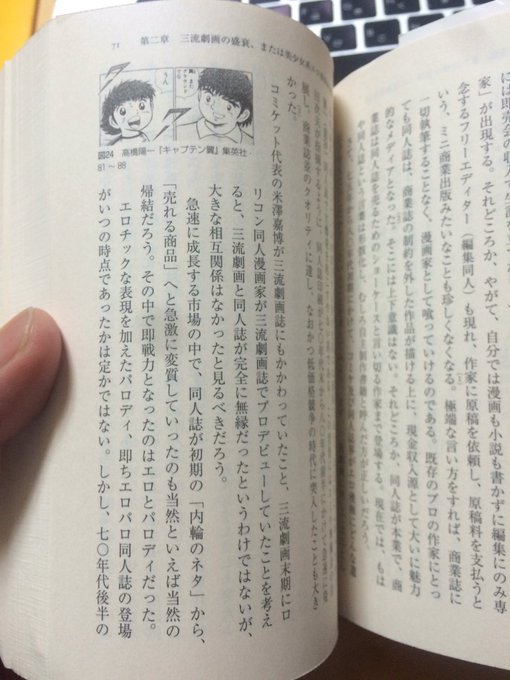 家」が出現する。それどころか、やがて、自分では漫画も小説も書かずに編集にのみ専
念するフリーエディター（編集同人）も現れ、作家に原稿を依頼し、原稿料を支払うと
いう、ミニ商業出版みたいなことも珍しくなくなる。極端な言い方をすれば、商業誌に
一切執筆することなく、漫画家として喰っていけるのである。既存のプロの作家にとっ
ても同人誌は、商業誌の制約を外した作品が描ける上に、現金収入源として大いに魅力
的なメディアとなった。そこには上下意識はない。それどころか、同人誌が本業で、商
業誌は同人誌を売るためのショーケースと言い切る作家まで登場する。現在では、もは
や同人誌という言葉は形骸化し、むしろ自主制作書籍と呼んだ方が正しいだろう。
71 第二章 三流劇画の盛衰、または美少女系
展し、商業誌並のクオリティに達し、なおかつ低価格競争の時代に突入したことも大き
かった。
コミケット代表の米澤嘉博が三流劇画誌にもかかわっていたこと、三流劇画末期にロ
リコン同人漫画家が三流劇画誌でプロデビューしていたことを考え
ると、三流劇画と同人誌が完全に無縁だったというわけではないが、
大きな相互関係はなかったと見るべきだろう。
急速に成長する市場の中で、同人誌が初期の「内輪のネタ」から、
「売れる商品」へと急激に変質していったのも当然といえば当然の
帰結だろう。その中で即戦力となったのはエロとパロディだった。
エロチックな表現を加えたパロディ、即ちエロパロ同人誌の登場
がいつの時点であったかは定かではない。しかし、七〇年代後半の
うん
図24 高橋陽一『キャプテン翼』集英社・
81〜88